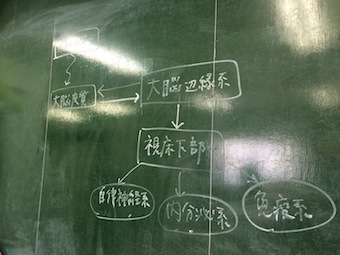 大脳皮質
大脳辺縁系
視床下部
自律神経系
内分泌系
免疫系